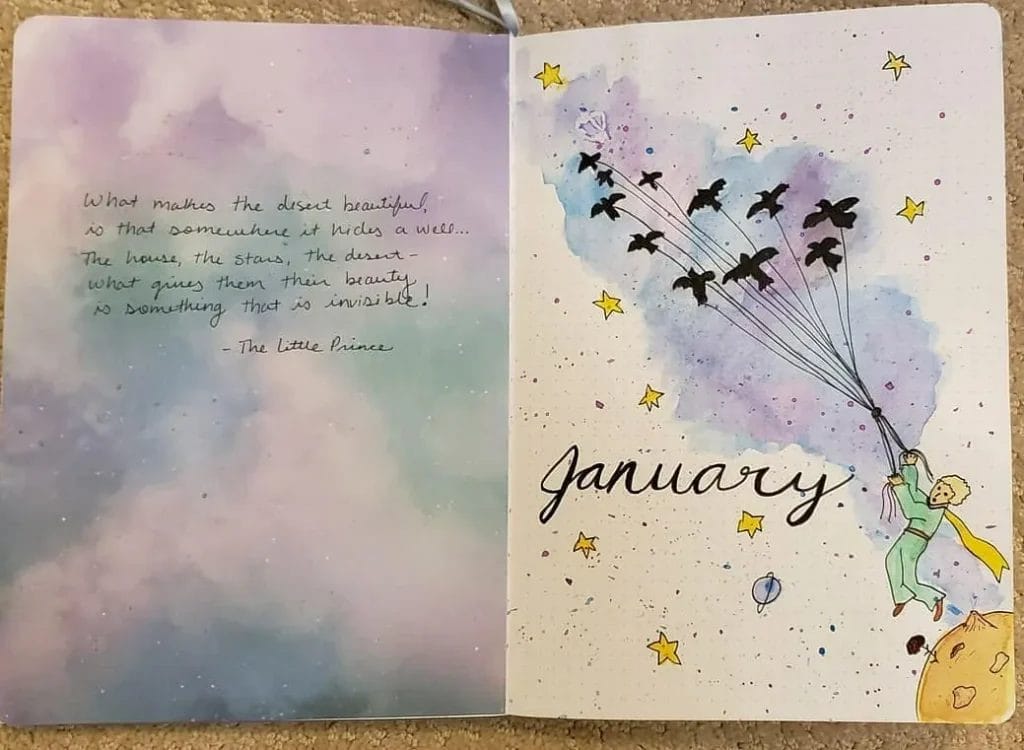 What makes the desert beautiful,
is that somewhere it hides a well...
The house, the stars, the desert -
what gives them their beauty
is something that is invisible!
- The Little Prince
January